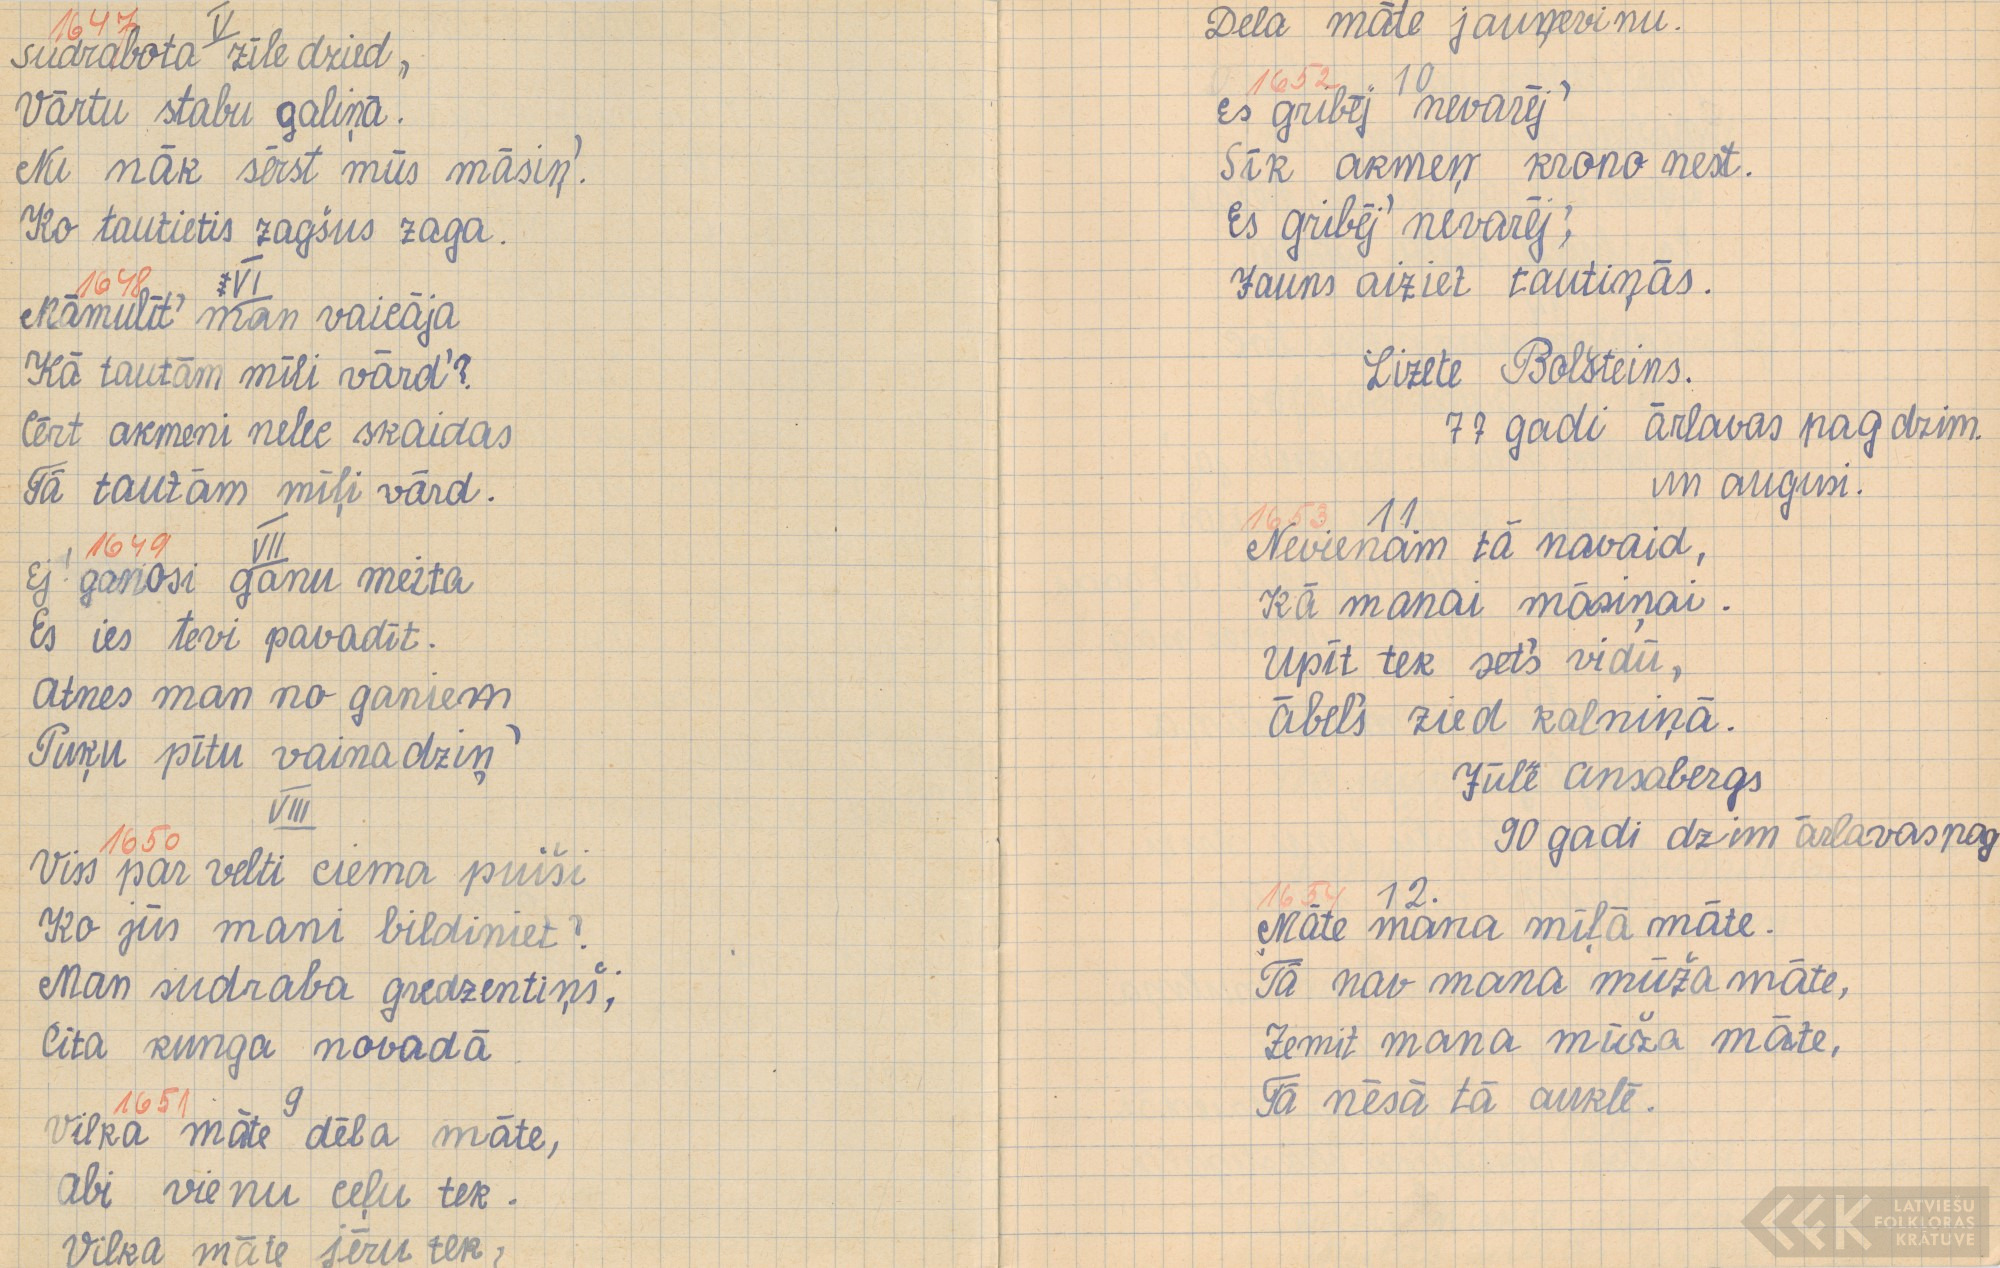 1647 V
Sudrabota zīle dzied,
Vārtu stabu galiņā.
Nu nāk sērst mūs māsiņ'.
Ko tautietis zagšus zaga.
1648 VI
Māmulīt' man vaicāja
Kā tautām mīli vārd'?
Cērt akmeni nelec skaidas
Tā tautām mīļi vārd.
1649 VII
Ej! ganosi ganu meita
Es ies tevi pavadīt.
Atnes man no ganiem
Puķu pītu vainadziņ'
VIII
1650
Viss par velti ciema puiši
Ko jūs mani bildiniet?
Man sudraba gredzentiņš,
Cita kunga novadā
1651 9
Vilka māte dēla māte,
Abi vienu ceļu tek.
Vilka māte jēru tek,
Dela māte jauņevinu.
1652 10
Es gribēj nevarēj'
Sīk akmeņ krono nest.
Es gribēj' nevarēj,
Jauns aiziet tautiņās.
Lizete Bolšteins.
77 gadi ārlavas pag dzim.
un augusi.
1653 11
Nevienam tā navaid,
Kā manai māsiņai.
Upīt tek sets vidū,
Ābels zied kalniņā.
Jūlē Ansabergs
90 gadi dzim ārlavas pag
1654 12.
Māte mana mīļā māte.
Tā nav mana mūža māte,
Zemit mana mūža māte,
Tā nēsā tā auklē.
LATVIEŠU
FOLKLORAS
KRĀTUVE